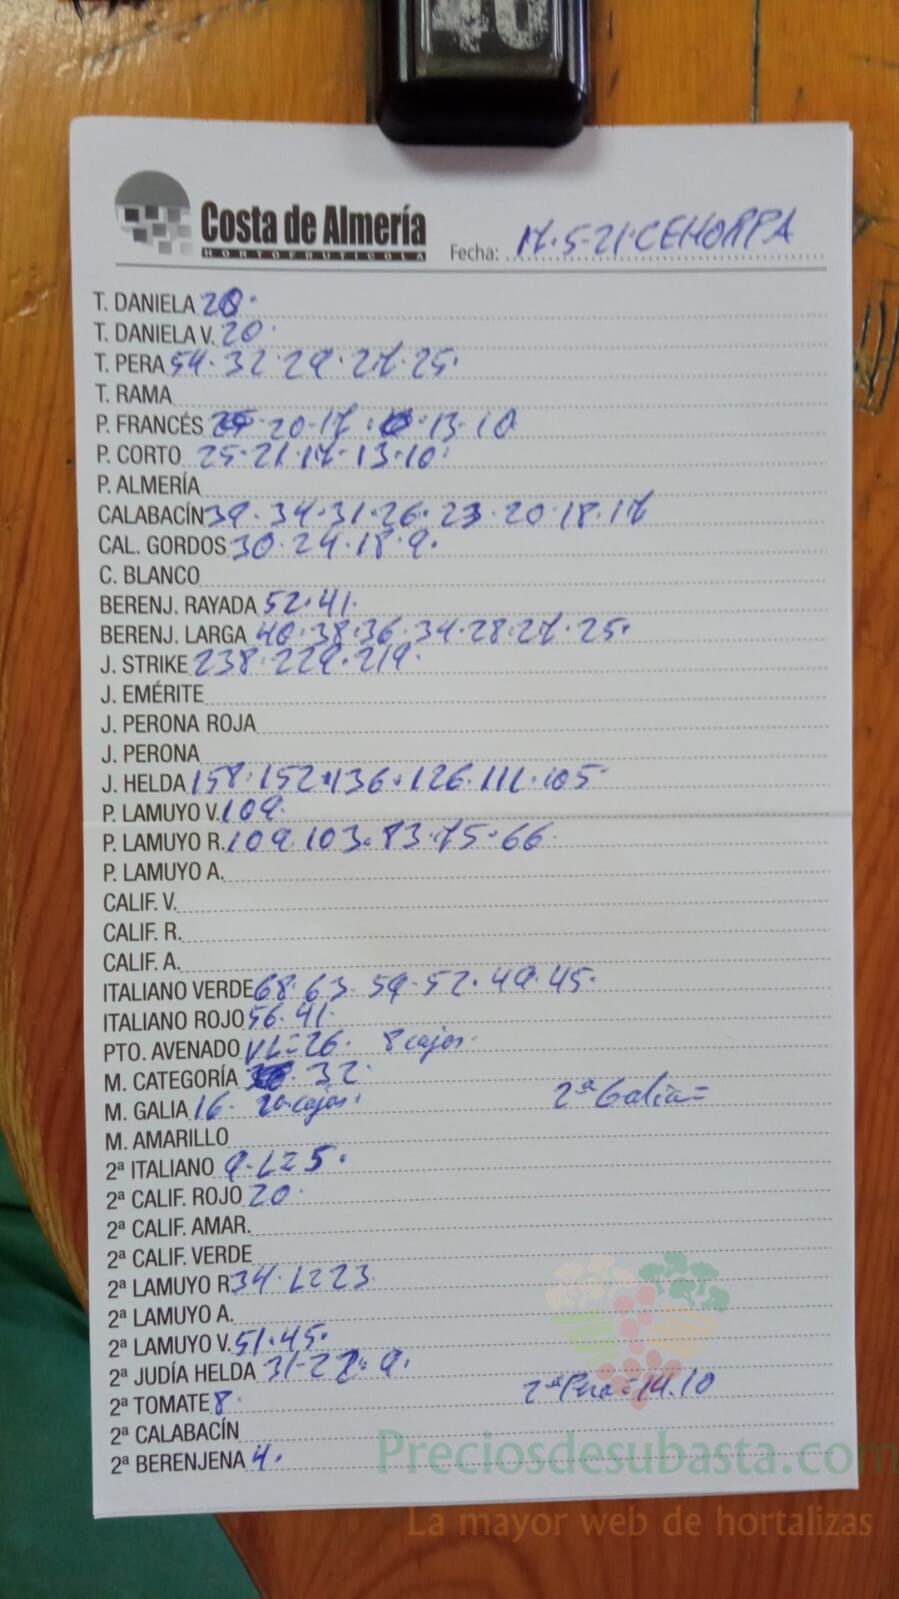 Costa de Almería
HORTOFRUTICOLA
Fecha: 17.5-21.CEHORPA
T. DANIELA 20.
T. DANIELA V. 20.
T. PERA 54.32.29.27.25.
T. RAMA
P. FRANCÉS 20.17. 13.10
P. CORTO 25.21.17.13.10.
P. ALMERÍA
CALABACÍN 39.34.31.26.23.20.18.17
CAL. GORDOS 30.24.18.9.
C. BLANCO
BERENJ. RAYADA 52.41.
BERENJ. LARGA 40.38.36.34.28.27.25.
J. STRIKE 238.229.219.
J. EMÉRITE
J. PERONA ROJA
J. PERONA
J. HELDA 158.152.136.126.111.105.
P. LAMUYO V. 109.
P. LAMUYO R. 109.103.83.75.66
P. LAMUYO A.
CALIF. V.
CALIF. R.
CALIF. A.
ITALIANO VERDE 68.63.59.52.49.45.
ITALIANO ROJO 56.41.
PTO. AVENADO VL=26. 8 cajas.
M. CATEGORÍA 32.
M. GALIA 16. cajas. 2ª Galia=
M. AMARILLO
2ª ITALIANO 9.L=5.
2ª CALIF. ROJO 20.
2ª CALIF. AMAR.
2ª CALIF. VERDE
2ª LAMUYO R 34.L=23
2ª LAMUYO A.
2ª LAMUYO V. 51.45.
2ª JUDÍA HELDA 31-27.9.
2ª TOMATE 8. 2ª Pera=14.10
2ª CALABACÍN
2ª BERENJENA 4.
Preciosdesubasta.com
La mayor web de hortalizas